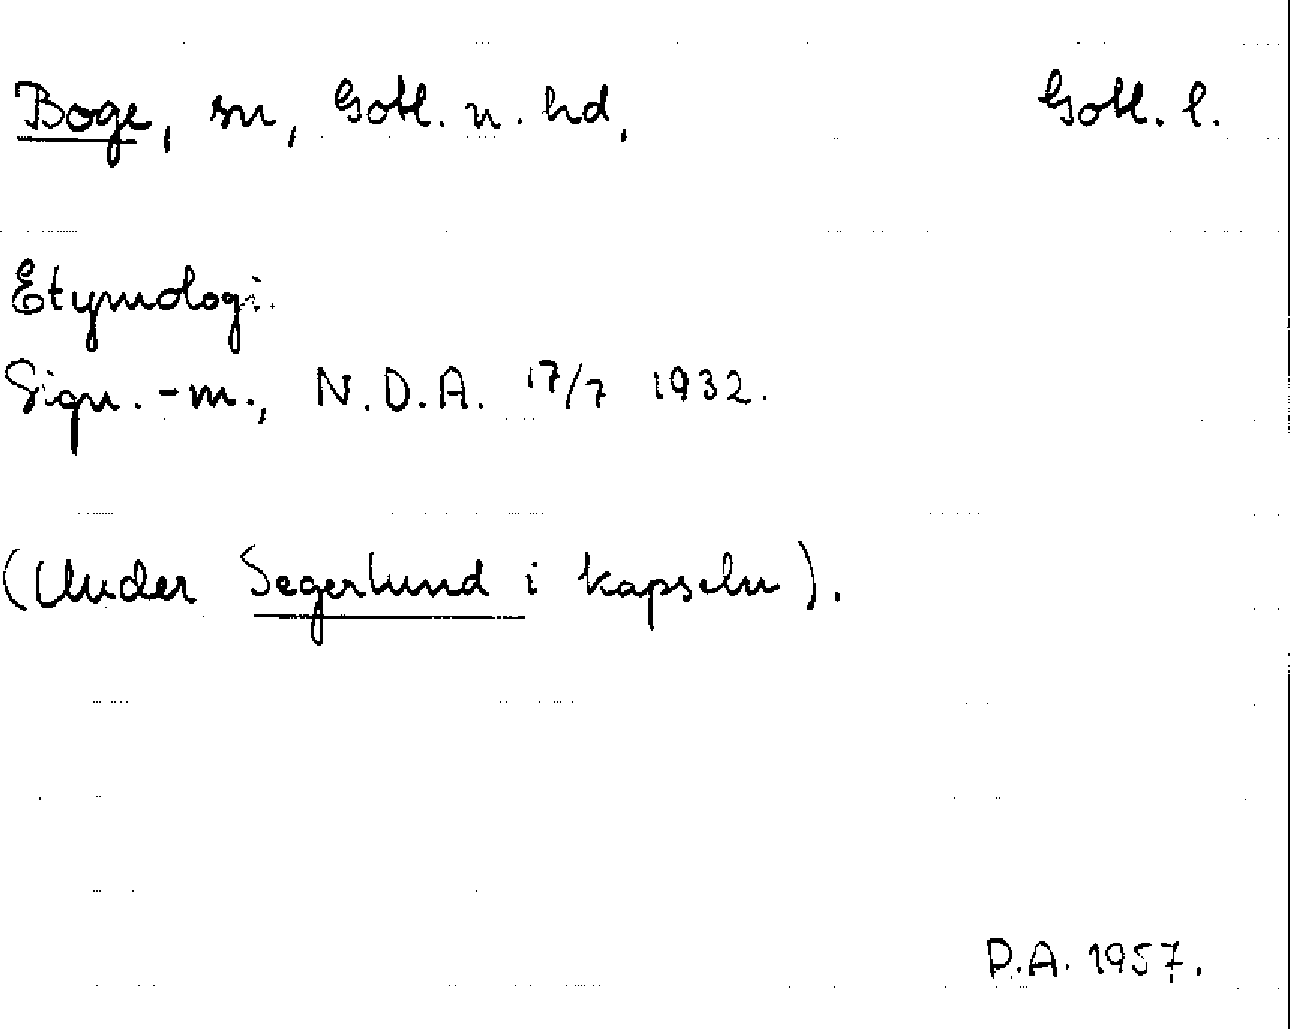 Boge, sn, Gotl. n. hd, Gotl. l.
Etymologi.
Sign. -m., N.D.A. 17/7 1932.
(Under Segerlund i kapseln).
D.A. 1957.